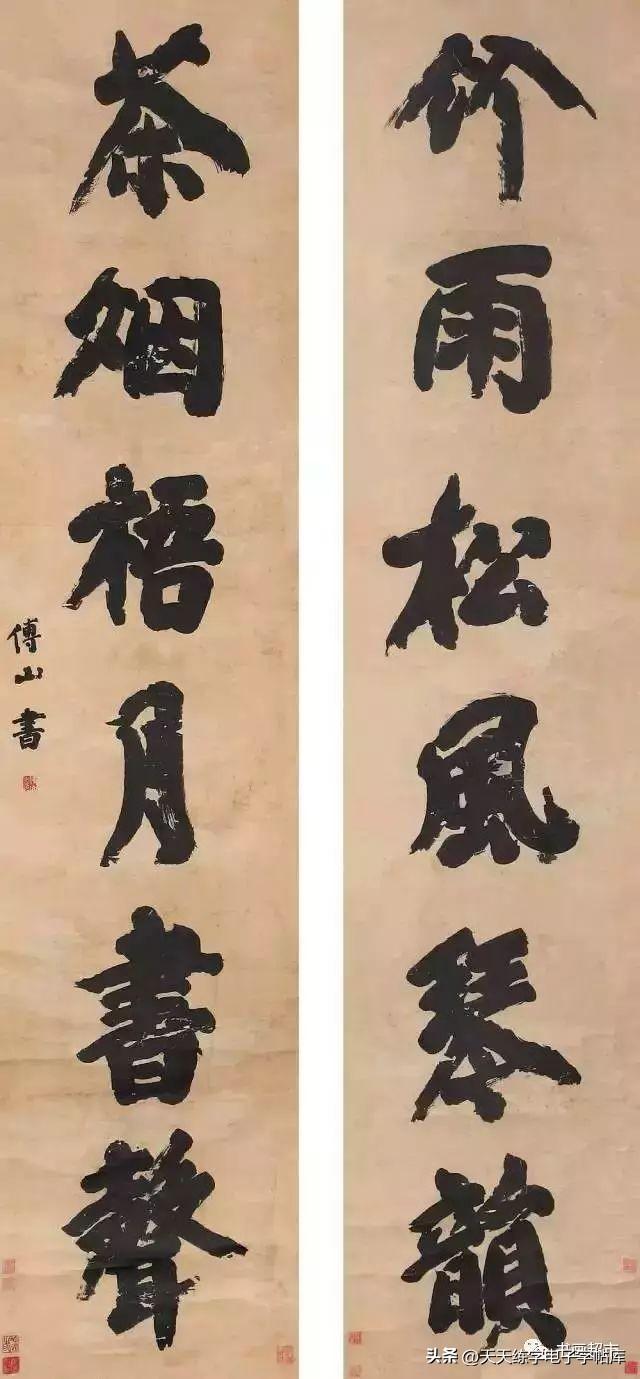 竹雨松風琴韻
茶烟梧月書聲
傅山書
书画超市
头条 @天天练字电子字帖库